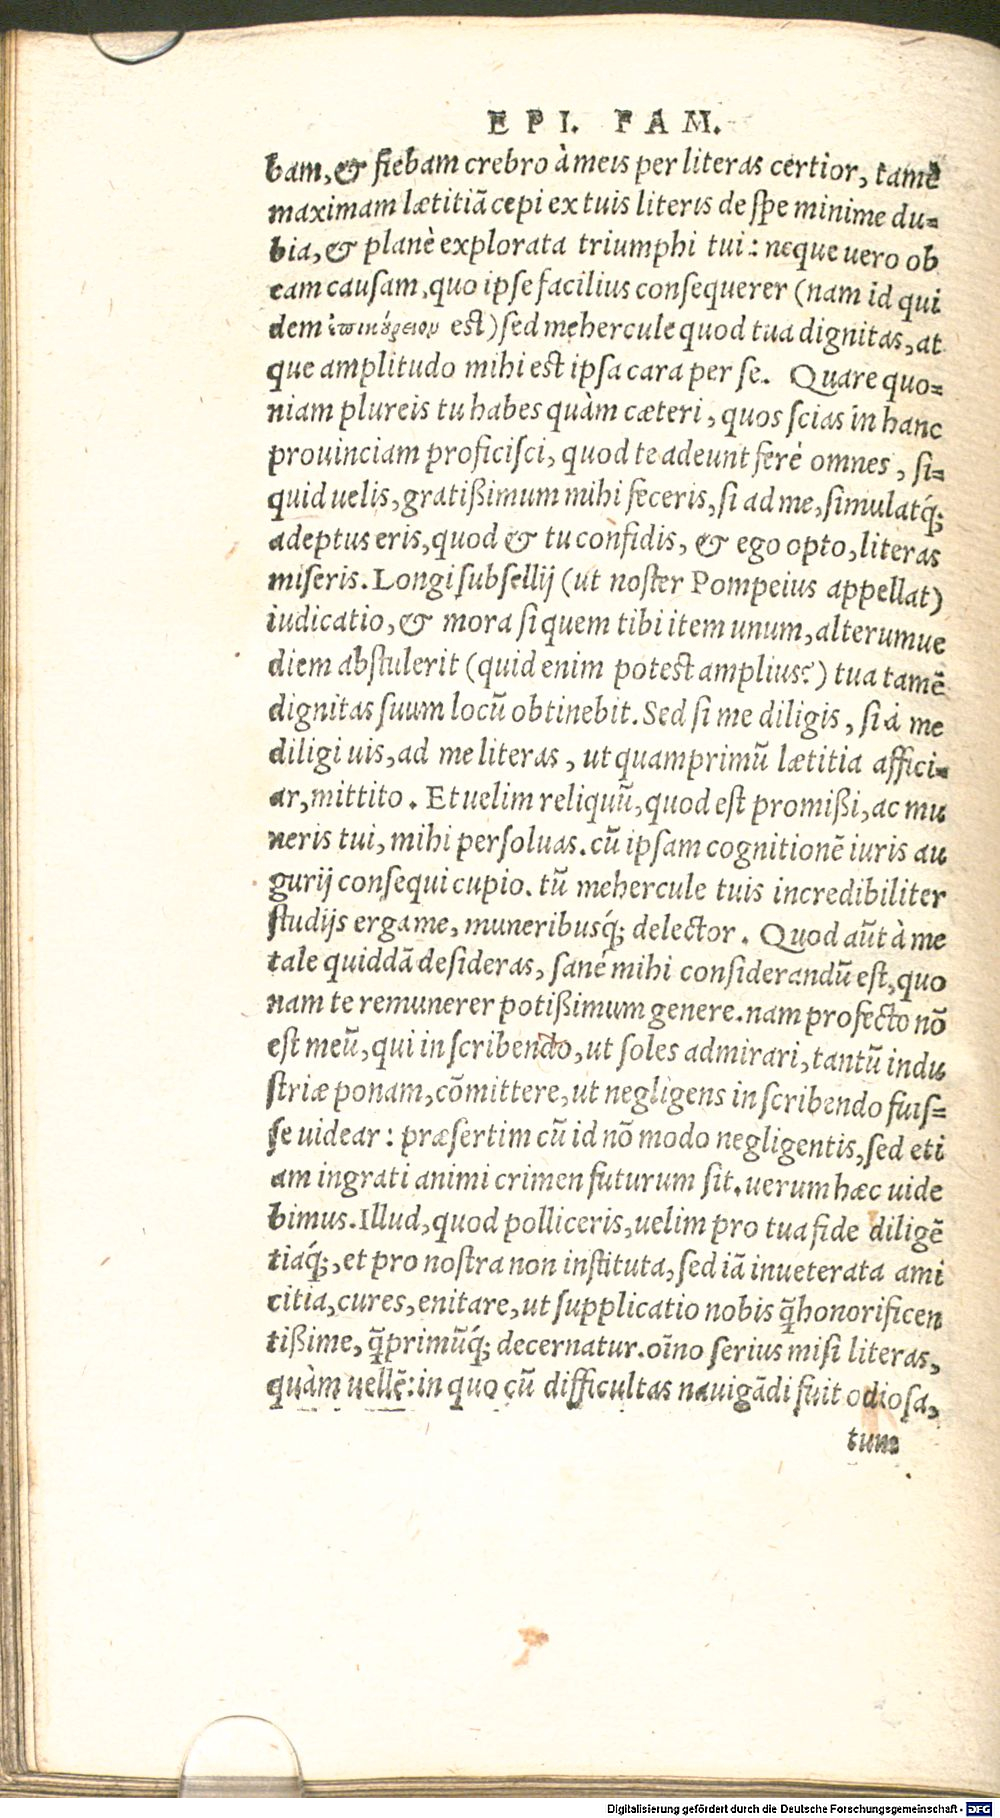 EPI. FAM.
bam, & fiebam crebro à meis per literas certior, tamē
maximam lætitiā cepi ex tuis literis de spe minime du=
bia, & planè explorata triumphi tui: neque uero ob
eam causam, quo ipse facilius consequerer (nam id qui
dem ἐπικούρειον est) sed mehercule quod tua dignitas, at
que amplitudo mihi est ipsa cara per se. Quare quo=
niam plureis tu habes quàm cæteri, quos scias in hanc
prouinciam proficisci, quod te adeunt ferè omnes, si=
quid uelis, gratißimum mihi feceris, si ad me, simulatq́;
adeptus eris, quod & tu confidis, & ego opto, literas
miseris. Longi subsellij (ut noster Pompeius appellat)
iudicatio, & mora si quem tibi item unum, alterumue
diem abstulerit (quid enim potest amplius?) tua tamē
dignitas suum locū obtinebit. Sed si me diligis, si à me
diligi uis, ad me literas, ut quamprimū lætitia affici=
ar, mittito. Et uelim reliquū, quod est promißi, ac mu
neris tui, mihi persoluas. cū ipsam cognitionē iuris au
gurij consequi cupio. tū mehercule tuis incredibiliter
studijs erga me, muneribusq́; delector. Quod aūt à me
tale quiddā desideras, sanè mihi considerandū est, quo
nam te remunerer potißimum genere. nam profecto nō
est meū, qui in scribendo, ut soles admirari, tantū indu
striæ ponam, cōmittere, ut negligens in scribendo fuis=
se uidear: præsertim cū id nō modo negligentis, sed eti
am ingrati animi crimen futurum sit. uerum hæc uide
bimus. Illud, quod polliceris, uelim pro tua fide diligē
tiaq́;, et pro nostra non instituta, sed iā inueterata ami
citia, cures, enitare, ut supplicatio nobis q̄ honorificen
tißime, q̄primūq́; decernatur. oīno serius misi literas,
quàm uellē: in quo cū difficultas nauigādi fuit odiosa,
tum
Digitalisierung gefördert durch die Deutsche Forschungsgemeinschaft - DFG